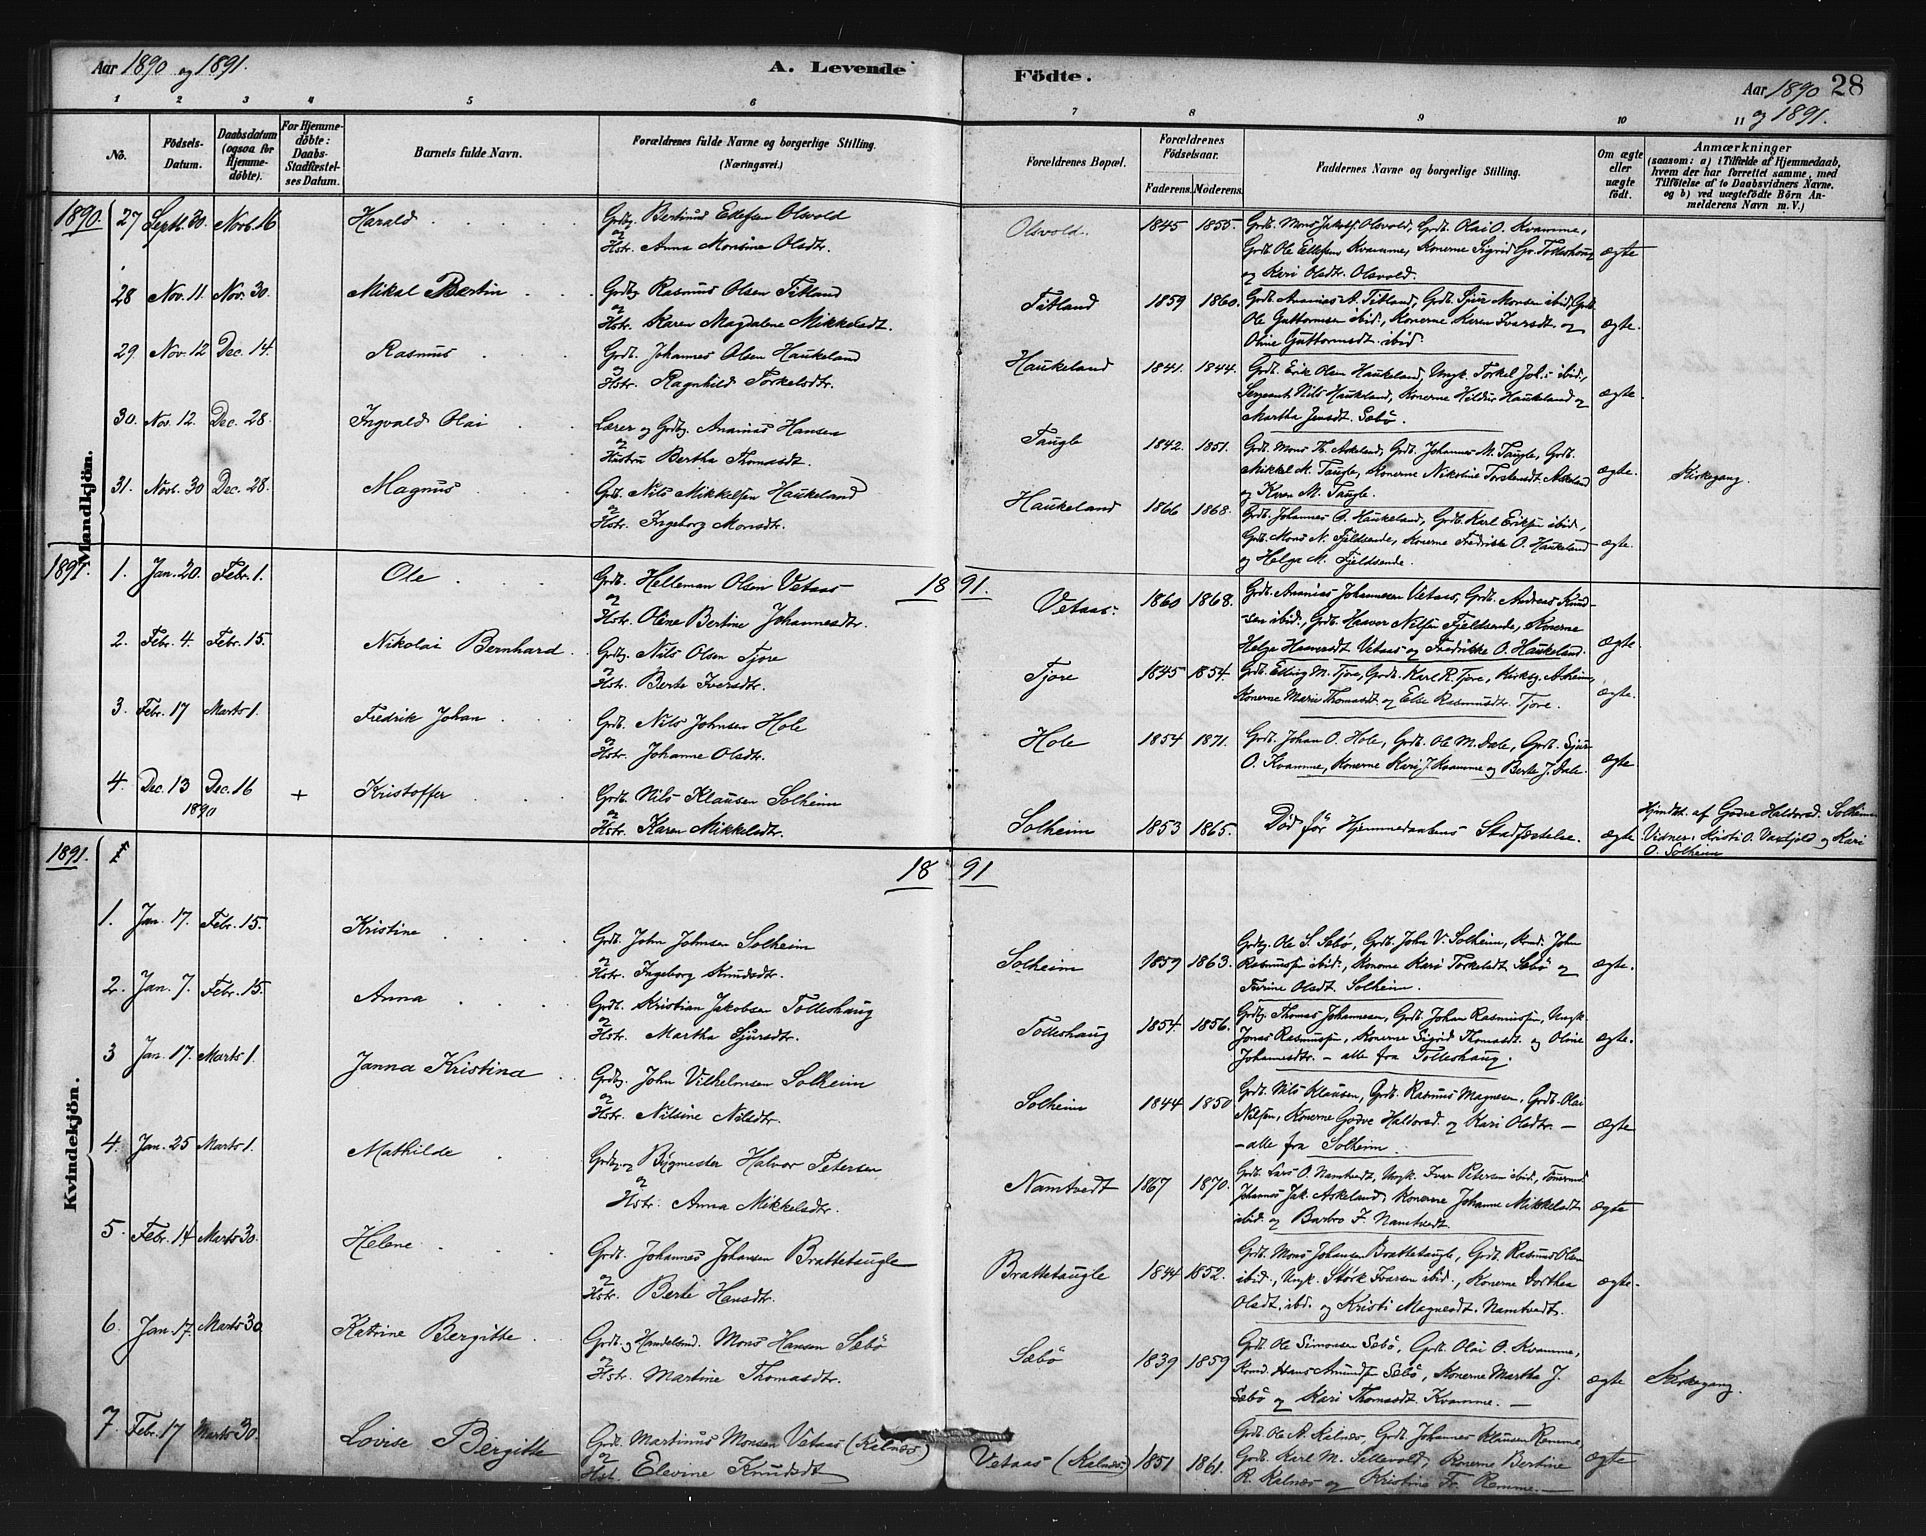 Aar 1890 og 1891.
A. Levende
Födte.
Aar 1890 28
og 1891.
1 2 3 4 5 6 7 8 9 10 11
No.
Födsels-Datum.
Daabsdatum (ogsaa for Hjemme-döbte).
For Hjemme-döbte: Daabs-Stadfæstel-ses Datum.
Barnets fulde Navn.
Forældrenes fulde Navne og borgerlige Stilling.
(Næringsvei.)
Forældrenes Bopæl.
Forældrenes Födselsaar.
Faderens. Moderens.
Faddernes Navne og borgerlige Stilling.
Om ægte eller uægte födt.
Anmærkninger
(saasom: a) i Tilfælde af Hjemmedaab,
hvem der har forrettet samme, med
Tilföielse af to Daabsvidners Navne.
og b) ved uægtefödte Börn An-
melderens Navn m. V.)
Mandkjön.
1890. 27 Septb. 30. Novb. 16 Harald Grdbr. Bertinus Ellefsen Olsvold
og
Hstr. Anna Monsine Olsdtr.
Olsvold. 1845 1855. Grdb. Mons Jakobs. Olsvold, Grdb. Olai O. Kvamme,
Grdb Ole Ellefsen Kvamme, Konerne Sigrid Gr. Tolleshaug
og Kari Olsdt. Olsvold. ægte
28 Nov. 11. Nov. 30. Mikal Bertin Grdbr. Rasmus Olsen Titland
og
Hstr. Karen Magdalene Mikkelsdt.
Titland 1859 1860. Grdb. Ananias A. Titland, Grdb. Sjur Monsen ibid, Grdb.
Ole Guttormsen ibid., Konerne Karen Ivarsdt. og
Oline Guttormsdt. ibid. ægte.
29. Nov. 12 Dec. 14. Rasmus Grdb. Johannes Olsen Haukeland
og
Hstr. Ragnhild Torkelsdtr.
Haukeland 1841. 1844. Grdb. Erik Olsen Haukeland, Ungk. Torkel Joh.s. ibid.,
Sergeant Nils Haukland, Konerne Hildur Haukeland og
Martha Jensdt. Sebö. ægte.
30. Nov. 12. Dec. 28. Ingvald Olai Lærer og Grdbr. Ananias Hansen
og
Hustru Bertha Thomasdt.
Taugle 1842. 1851. Grdb. Mons Th. Askeland, Grdb. Johannes M. Taugle, Grdb.
Mikkel M. Taugle, Konerne Nikoline Torstensdt. Askeland
og Karen M. Taugle. ægte. Kirkegang.
31. Novb. 30 Dec. 28. Magnus Grdb. Nils Mikkelsen Haukeland
og
Hstr. Ingeborg Monsdtr.
Haukeland 1866 1868. Grdb. Johannes O. Haukeland, Grdb. Karl Eriksen ibid.,
Grdb. Mons N. Fjeldsende, Konerne Fredrikke O. Haukeland
og Helga M. Fjeldsende. ægte.
1891. 18 91.
1. Jan. 20. Febr. 1. Ole Grdb. Helleman Olsen Vetaas
og
Hstr. Oline Bertine Johannesdtr.
Vetaas. 1860 1868. Grdb. Ananias Johannesen Vetaas, Grdb. Andreas Knud-
sen ibid., Grdb. Haavor Nilsen Fjeldsende, Konerne
Helga Haavorsdt. Vetaas og Fredrikke O. Haukeland. ægte.
2. Febr. 4. Febr. 15. Nikolai Bernhard Grdbr. Nils Olsen Tjore
og
Hstr. Berte Iversdtr.
Tjore 1845 1854. Grdb. Elling M. Tjore, Grdb. Karl R. Tjore, Kirksg. Asheim,
Konerne Mari Thomasdt. og Else Rasmusdtr. Tjore. ægte.
3. Febr. 17 Marts 1. Fredrik Johan Grdb. Nils Johnsen Hole
og
Hstr. Johanne Olsdtr.
Hole 1854 1871. Grdb. Johan O. Hole, Grdb. Ole M. Dale, Grdb. Sjur
O. Kvamme, Konerne Kari J. Kvamme og Berte J. Dale. ægte
4. Dec. 13 Dec. 16 1890 + Kristoffer Grdb. Nils Klausen Solheim
og
Hstr. Karen Mikkelsdtr.
Solheim 1853 1865. Død før Hjemmedaabens Stadfæstelse. ægte
Hjmdbt. af Godve Haldorsd. Solheim
Vidner: Kristi O. Vasfjeld og Kari
O. Solheim
Kvindekjön.
1891. 18 91
1. Jan. 17. Febr. 15. Kristine Grdb. John Johnsen Solheim
og
Hstr. Ingeborg Knudsdtr.
Solheim 1859 1863. Grdbr. Ole S. Sebö, Grdb. John V. Solheim, Kmd. John
Rasmussen ibid., Konerne Kari Torkelsdt. Sebö og
Turine Olsdt. Solheim. ægte.
2. Jan. 7. Febr. 15. Anna Grdb. Kristian Jakobsen Tolleshaug
og
Hstr. Martha Sjursdtr.
Tolleshaug 1854. 1856. Grdbr. Thomas Johannesen, Grdb. Johan Rasmussen, Ungk.
Jonas Rasmussen, Konerne Sigrid Thomasdt. og Oline
Johannesdtr. – alle fra Tolleshaug. ægte.
3 Jan. 17. Marts 1. Janna Kristina Grdbr. John Vilhelmsen Solheim
og
Hstr. Nilsine Nilsdtr.
Solheim 1844 1850 Grdb. Nils Klausen, Grdb. Rasmus Magnesen, Grdb. Olai
Nilsen, Konerne Godve Haldorsd. og Kari Olsdtr. –
– alle fra Solheim. ægte
4. Jan. 25 Marts 1. Mathilde Grdbr. og Bygmester Halvor Petersen
og
Hstr. Anna Mikkelsdtr.
Namtvedt 1867 1870. Grdb. Lars O. Namtvedt, Ungk. Ivar Petersen ibid.,
Johannes Jak. Askeland, Konerne Johanne Mikkelsdt
ibid. og Barbro F. Namtvedt. ægte
5. Febr. 14 Marts 30. Helene Grdb. Johannes Johansen Brattetaugle
og
Hstr. Berte Hansdtr.
Brattetaugle 1844 1852. Grdb. Mons Johansen Brattetaugle, Grdb. Rasmus Olsen
ibid., Ungk. Størk Ivarsen ibid., Konerne Dorthea
Olsdt. ibid. og Kristi Magnesdt. Namtvedt. ægte.
6. Jan. 17. Marts 30. Katrine Bergitte Grdb. og Handelsmd. Mons Hansen Sæbö
og
Hstr. Martine Thomasdtr.
Sæbö 1839 1859 Grdb Ole Simonsen Sæbö, Grdb Olai O. Kvamme,
Kmd. Hans Amundsen Sæbö, Konerne Martha J.
Sæbö og Kari Thomasdt Kvamme. – ægte Kirkegang.
7. Febr. 17 Marts 30. Lovise Bergitte Grdb. Martinus Monsen Vetaas (Kalnæs)
og
Hst. Elevine Knudsdt
Vetaas (Kalnæs) 1851 1861. Grdb. Ole A. Kalnæs, Grdb. Johannes Klausen Remme,
Grdb. Karl M. Sellevold, Konerne Bertine
R. Kalnæs og Kristine Fr. Remme. – ægte